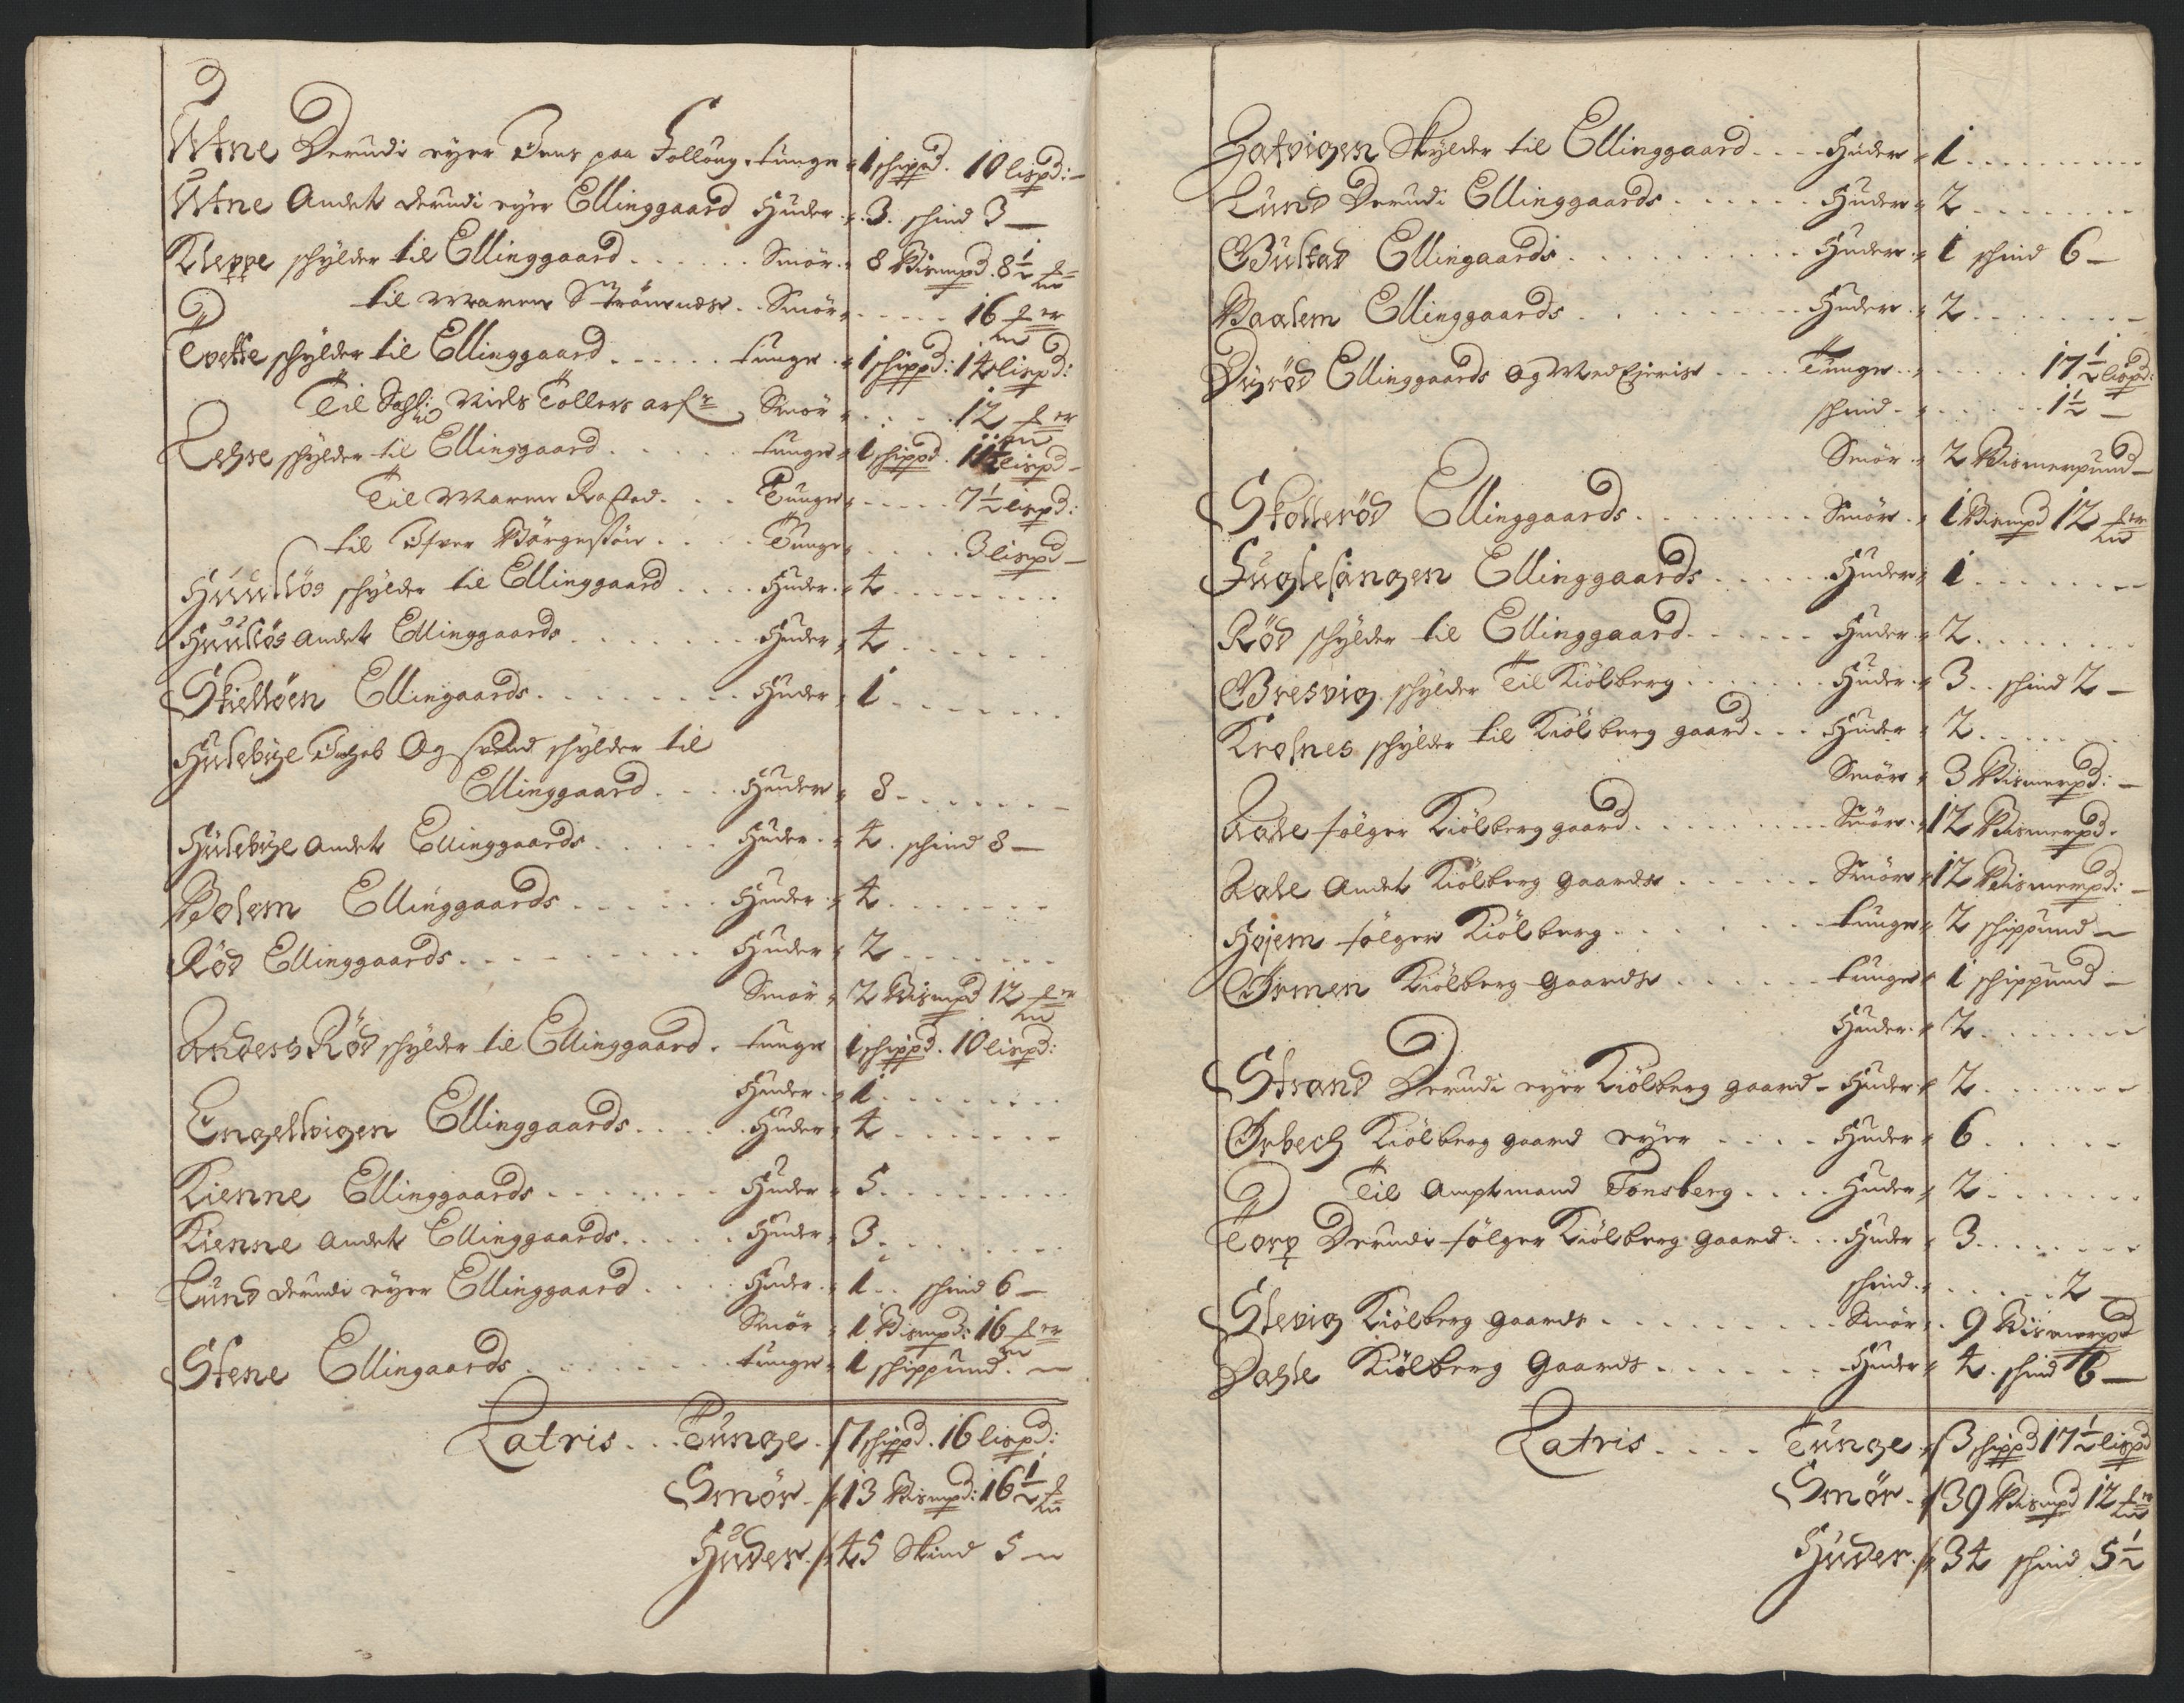 Utne Derudi eyer Jens paa Folloug tunge 1 schippd. 10 lispd:
Utne Andet derudi eyer Ellinggaard Huder 3. schind 3
Kleppe schylder til Ellinggaard Smör 8 Bismpd. 8½
til Maren Strömnds Smör 16
Tvette schylder til Ellinggaard tunge 1 schippd: 14 lispd:
Til Sahl: Niels Tollers arf Smör 12
Lehne schylder til Ellinggaard tunge 1 schippd. lispd
Til Maren Tunge 7½ lispd:
til Ifver Börgesöen Tunge 3 lispd
schylder til Ellinggaard Huder 4
Andet Ellinggaards Huder 4
Skielløen Ellingaards Huder 1
Hulebye Jahob Og Svend schylder til
Ellinggaard Huder 8
Hulebye Andet Ellinggaards Huder 4. schind 8
Bolem Ellinggaards Huder 4
Rød Ellinggaards Huder 2
Smör 2 Bismpd 12
Anders Rød schylder til Ellinggaard tunge 1 schippd. 10 lispd:
Huder 1
Engelsvigen Ellinggaards Huder 4
Kienne Ellinggaards Huder 5
Kienne Andet Ellinggaards Huder 3
Lund derudi eyer Ellinggaard Huder 1 schind 6
Smör 1 Bismpd: 16
Stene Ellingaards tunge 1 schippund.
Latris Tunge 7 schippd. 16 lispd:
Smör 13 Bismpd: 16½
Huder 45 Skind 5
Hatvigen Skylder til Ellinggaard Huder 1
Lund Derudi Ellinggaards Huder 2
Ellingaards Huder 1 schind 6
Baalem Ellinggaards Huder 2
Dyrød Ellinggaards Og MedEierise Tunge 17½ lispd:
schind 1½
Smör 2 Bismerpund
Skollerød Ellinggaards Smör 1 Bismpd 12
Fuglesangen Ellinggaards Huder 1
Rød schylder til Ellinggaard Huder 2
Bresvig schylder Til Kiölberg Huder 3 schind 2
Krosnes schylder til Kiölberg gaard Huder 2
Smör 3 Bismerpd:
Aale fölger Kiölberg gaard Smör 12 Bismerpd.
Aale Andet Kiölberg Gaards Smör 12 Bismerpd:
Hojem fölger Kiölberg tunge 2 schippund
Ormen Kiölberg Gaards tunge 1 schippund
Huder 2
Strand Derudi eyer Kiölberg gaard Huder 2
Orbech Kiölberg gaard eyer Huder 6
Til Amptmand Tonsberg Huder 2
Torp Derudi fölger Kiölberg Gaard Huder 3
schind 2
Slevig Kiölberg Gaards Smör 9 Bismerpd
Dahle Kiölberg Gaards Huder 4. schind 6
Latris Tunge 3 schippd 17½ lispd
Smör 39 Bismpd 12
Huder 34 schind 5½